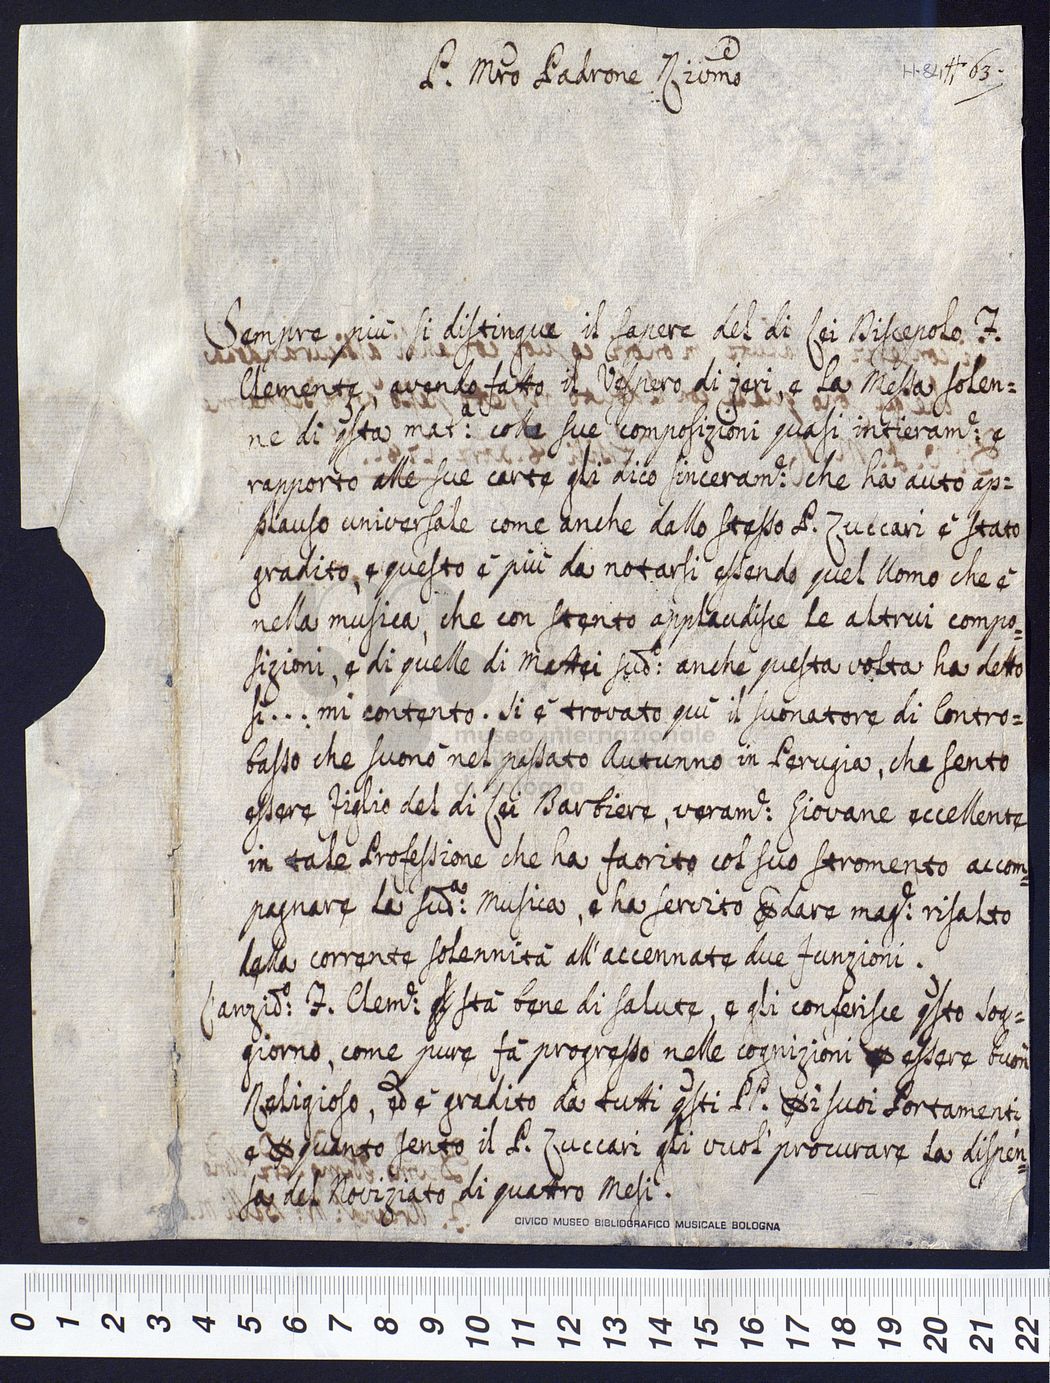 P. Mro Padrone Rivmo
H.84 # 63.
Sempre più si distingue il sapere del di Lei Discepolo F.
Clemente, avendo fatto il Vespero di jeri, e la Messa solen=
ne di qsta mat.a: colle sue composizioni quasi intieram.e: e
rapporto alle sue carte gli dico sinceram.e: che ha auto ap=
plauso universale come anche dallo stesso P. Zuccari è stato
gradito, e questo è più da notarsi essendo quel Uomo che è
nella musica, che con stento applaudisce le altrui compo=
sizioni, e di quelle di Mattei sud.o: anche questa volta ha detto
si... mi contento. Si è trovato quì il suonatore di Contro=
basso che suonò nel passato Autunno in Perugia, che sento
essere figlio del di Lei Barbiere, veram.e: Giovane eccellente
in tale Professione che ha faorito col suo stromento accom=
pagnare la sud.a: Musica, e ha servito dare mag.e: risalto
della corrente solennità all'accennate due funzioni.
L'anzid.o: F. Clem.e: sta bene di salute, e gli conferisce qsto sog=
giorno, come pure fà progresso nelle cognizioni essere buon
Religioso, ed è gradito da tutti qsti PP. i suoi Portamenti
e quanto sento il P. Zuccari gli vuol procurare la dispen=
sa del Noviziato di quattro Mesi.
museo internazionale
CIVICO MUSEO BIBLIOGRAFICO MUSICALE BOLOGNA
0 1 2 3 4 5 6 7 8 9 10 11 12 13 14 15 16 17 18 19 20 21 22